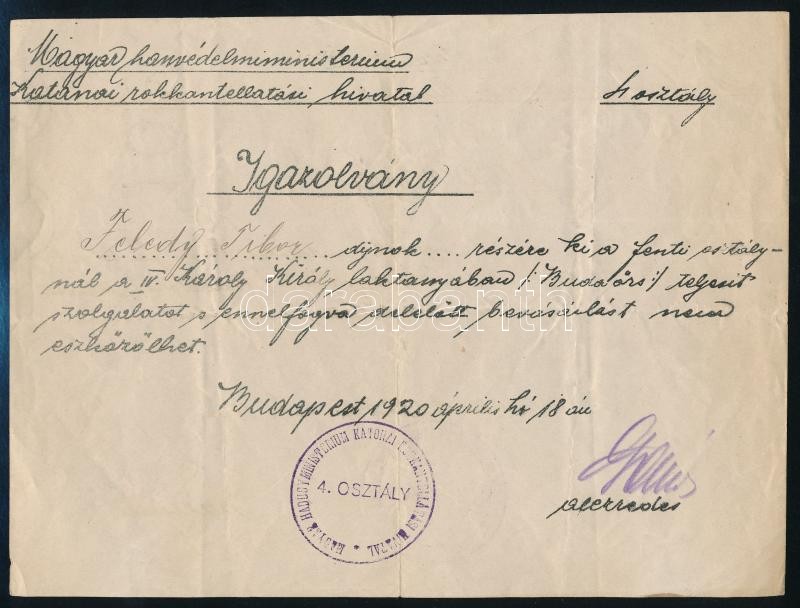 Magyar honvédelmiministerium
Katonai rokkantellatási hivatal
4 osztály
Igazolvány
Feledy Tibor dijnok .... részére ki a fenti osztály-
nál a IV. Károly Király laktanyában /:Budaörs:/ teljesit
szolgálatot s ennélfogva délelött bevásárlást nem
eszközölhet.
Budapest 1920 április hó 18 án
alezredes
MAGYAR HADÜGYMINISTERIUM KATONAI ROKKANTELLÁTÁSI HIVATAL *
4. OSZTÁLY
darabanth